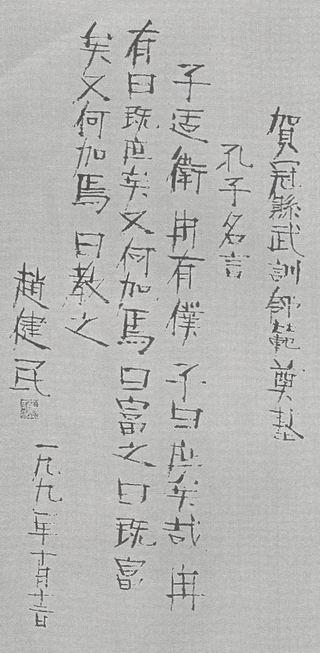 賀冠縣武訓師範奠基
孔子名言
子适衛冉有僕子曰庶矣哉冉
有曰既庶矣又何加焉曰富之曰既富
矣又何加焉曰教之
趙健民
一九九一年十月